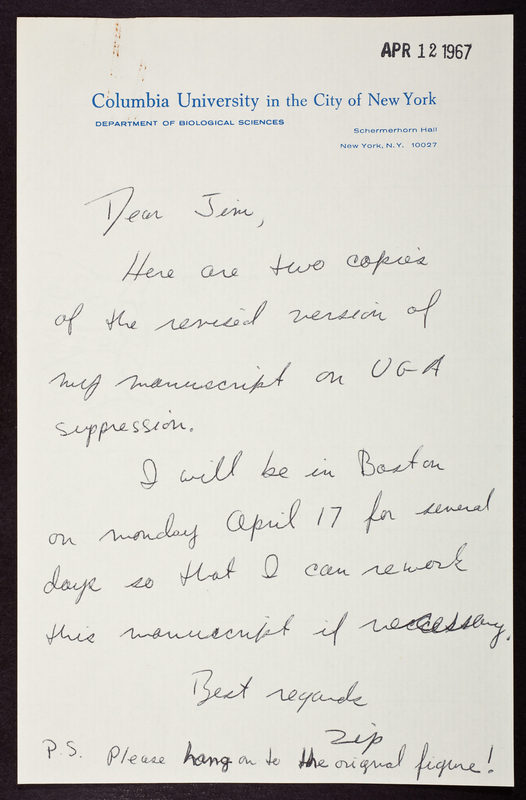 APR 12 1967
Columbia University in the City of New York
DEPARTMENT OF BIOLOGICAL SCIENCES
Schermerhorn Hall
New York, N.Y. 10027
Dear Jim,
Here are two copies
of the revised version of
my manuscript on UGA
suppression.
I will be in Boston
on monday April 17 for several
days so that I can rework
this manuscript if necessary.
Best regards
Zip
P.S. Please hang on to the original figure!